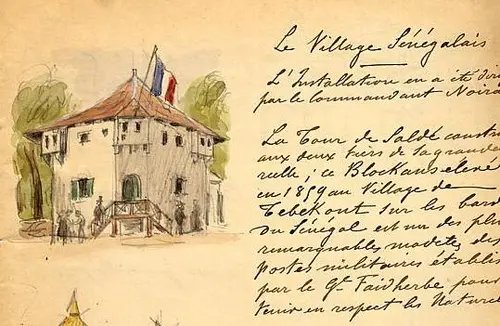 Le Village Sénégalais
L'Installation en a été diri
par le Commandant Noira
La Tour de Saldé constr
aux deux tiers de sa grande
relle; ce Blockaus eleve
en 1859 au Village de
Tebekout sur les bord
du Sénégal est un des plus
remarquables modèles des
Postes militaires établis
par le Gal Faidherbe pour
tenir en respect les Nature